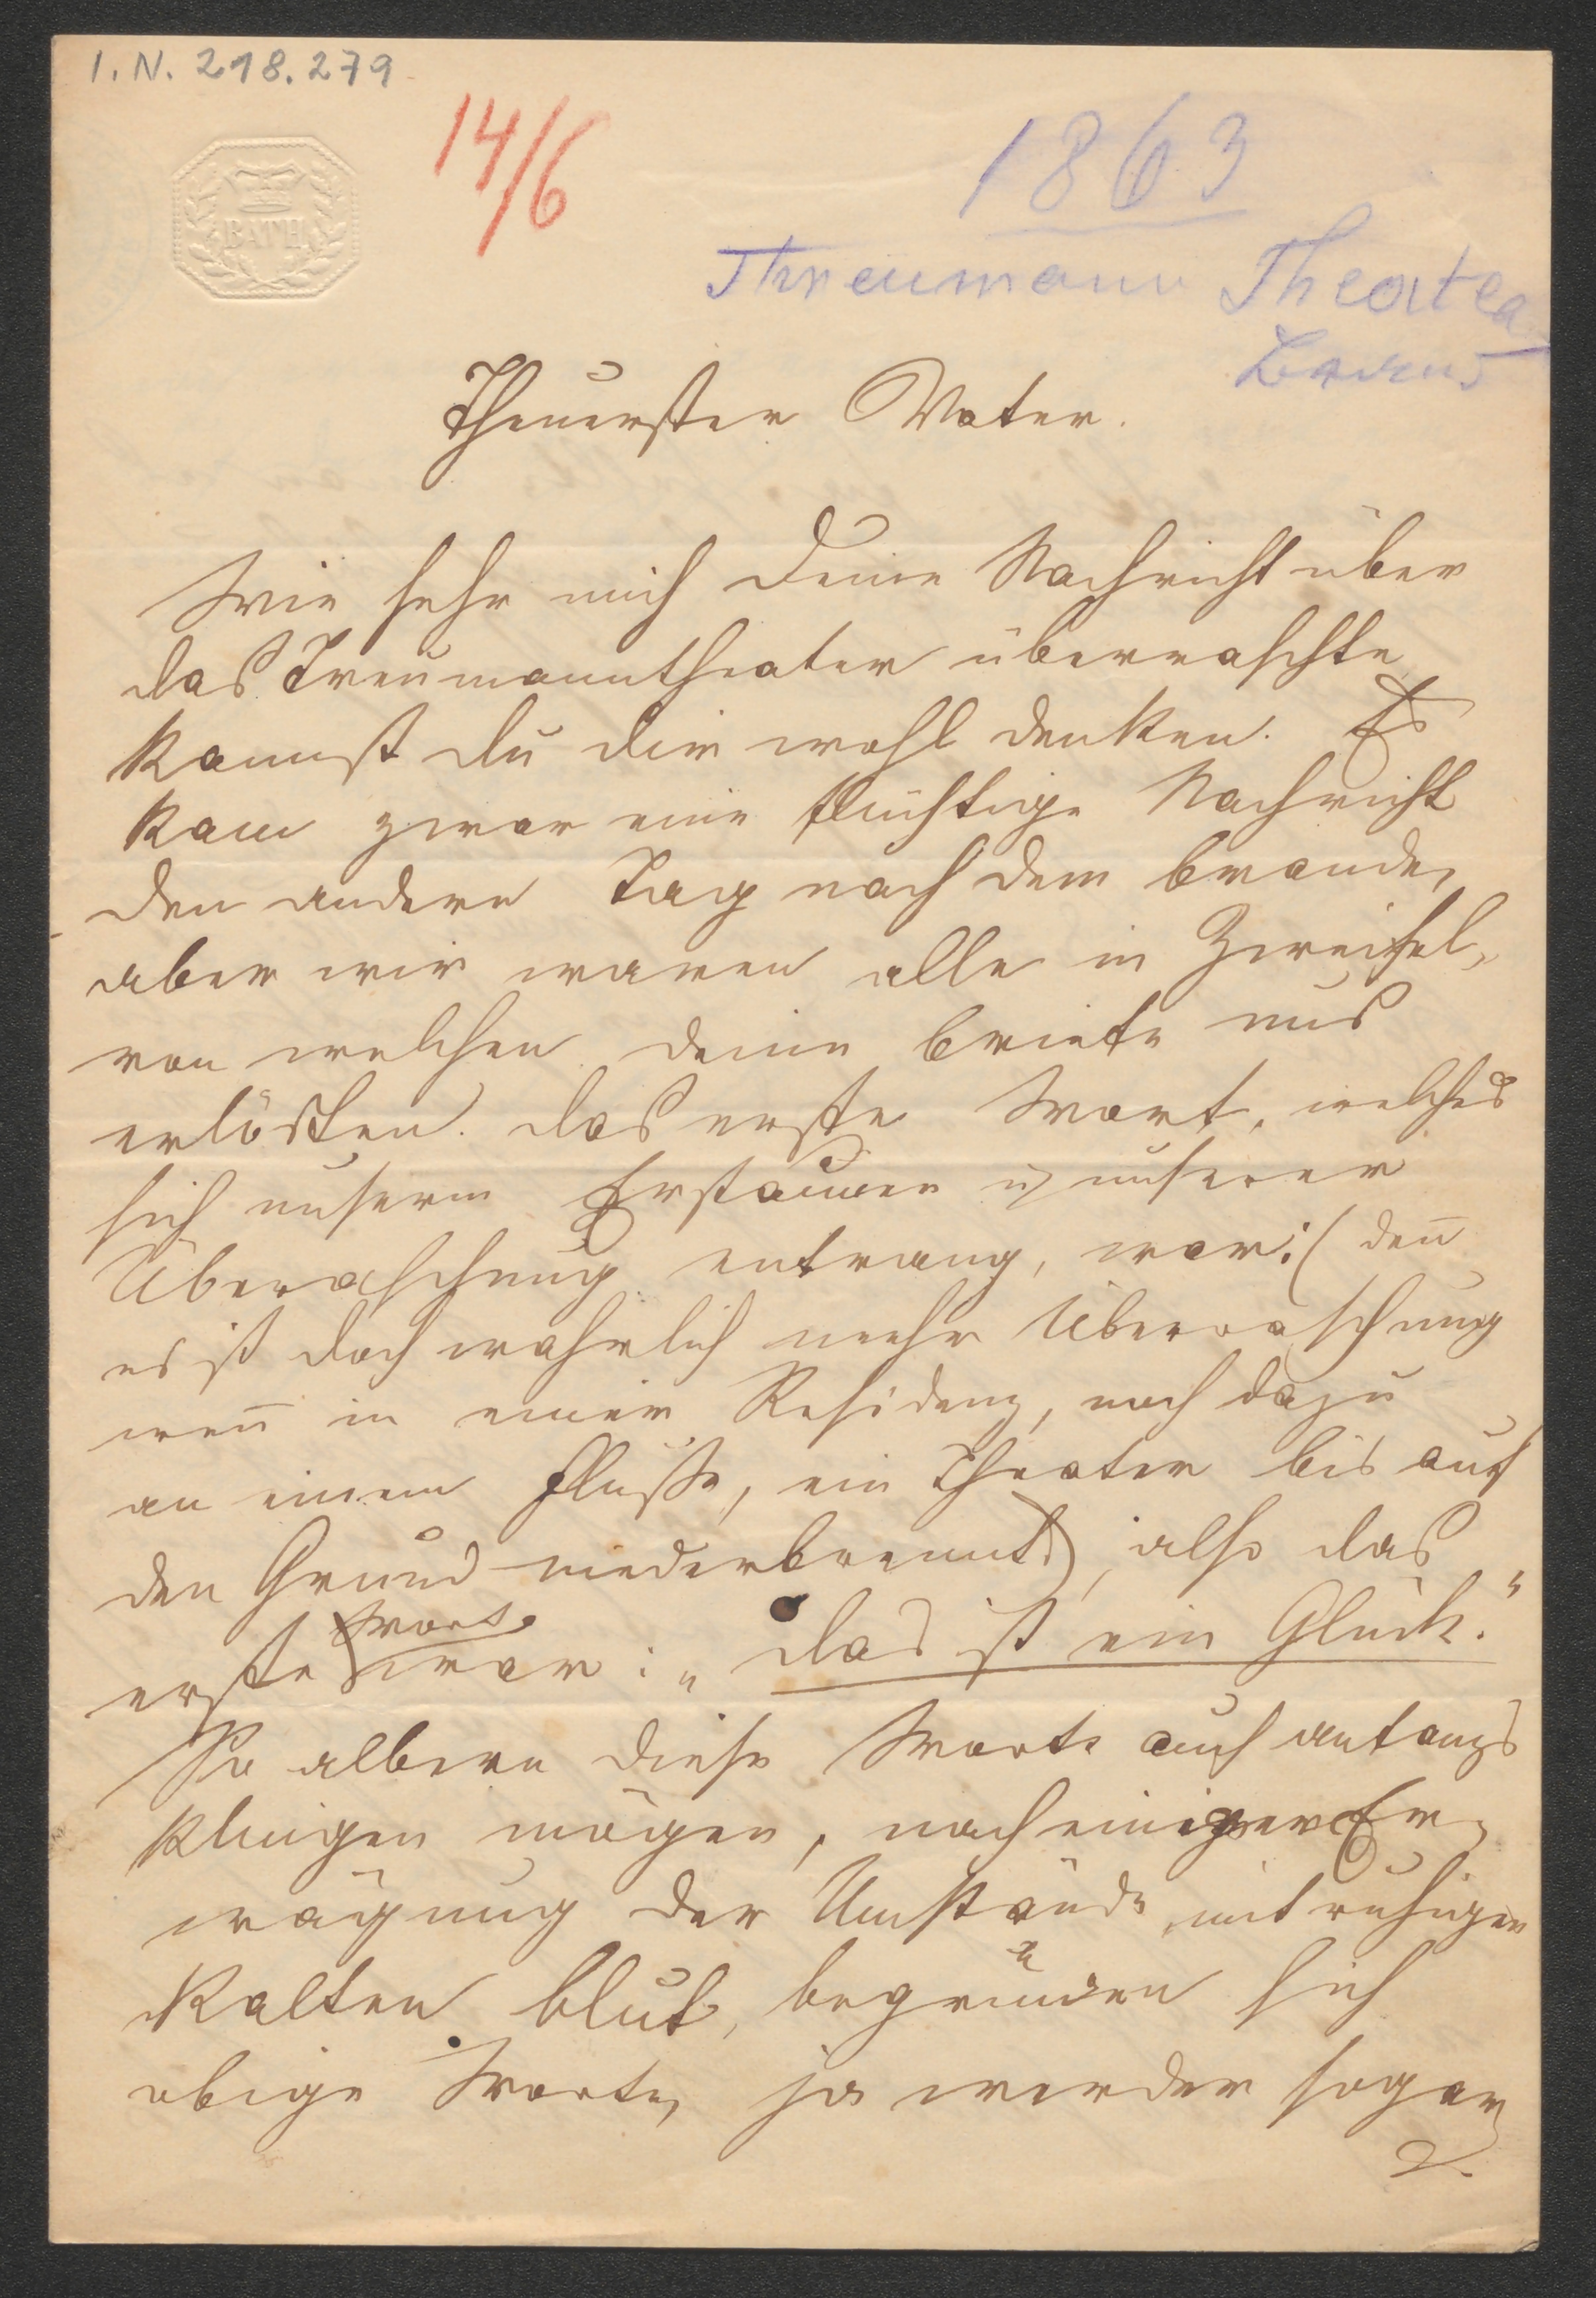 I. N. 218.279
14/6
1863
Threumann Theater
BATH
Theuerster Vater.
Wie sehr mich deine Nachricht über
das Treumanntheater überraschte
kannst du dir wohl denken. Es
kam zwar eine flüchtige Nachricht
den andern Tag nach dem brande,
aber wir waren alle in Zweifel,
von welchen deine briefe uns
erlösten. das erste Wort, welches
sich unserm Erstaunen u unserer
Überaschung entrang, war: (den̄
es ist doch wahrlich mehr Überraschung
wen̄ in einer Residenz, noch dazu
an einem Fluße, ein Theater bis auf
den Grund niederbrennt), also das
erste Wort war: „das ist ein Glück."
So albern diese Worte auch anfangs
klingen mögen, nach einiger Er-
wägung der Umstände, mit ruhigen
kalten blut, begründen sich
obige Worte, ja werden sogar